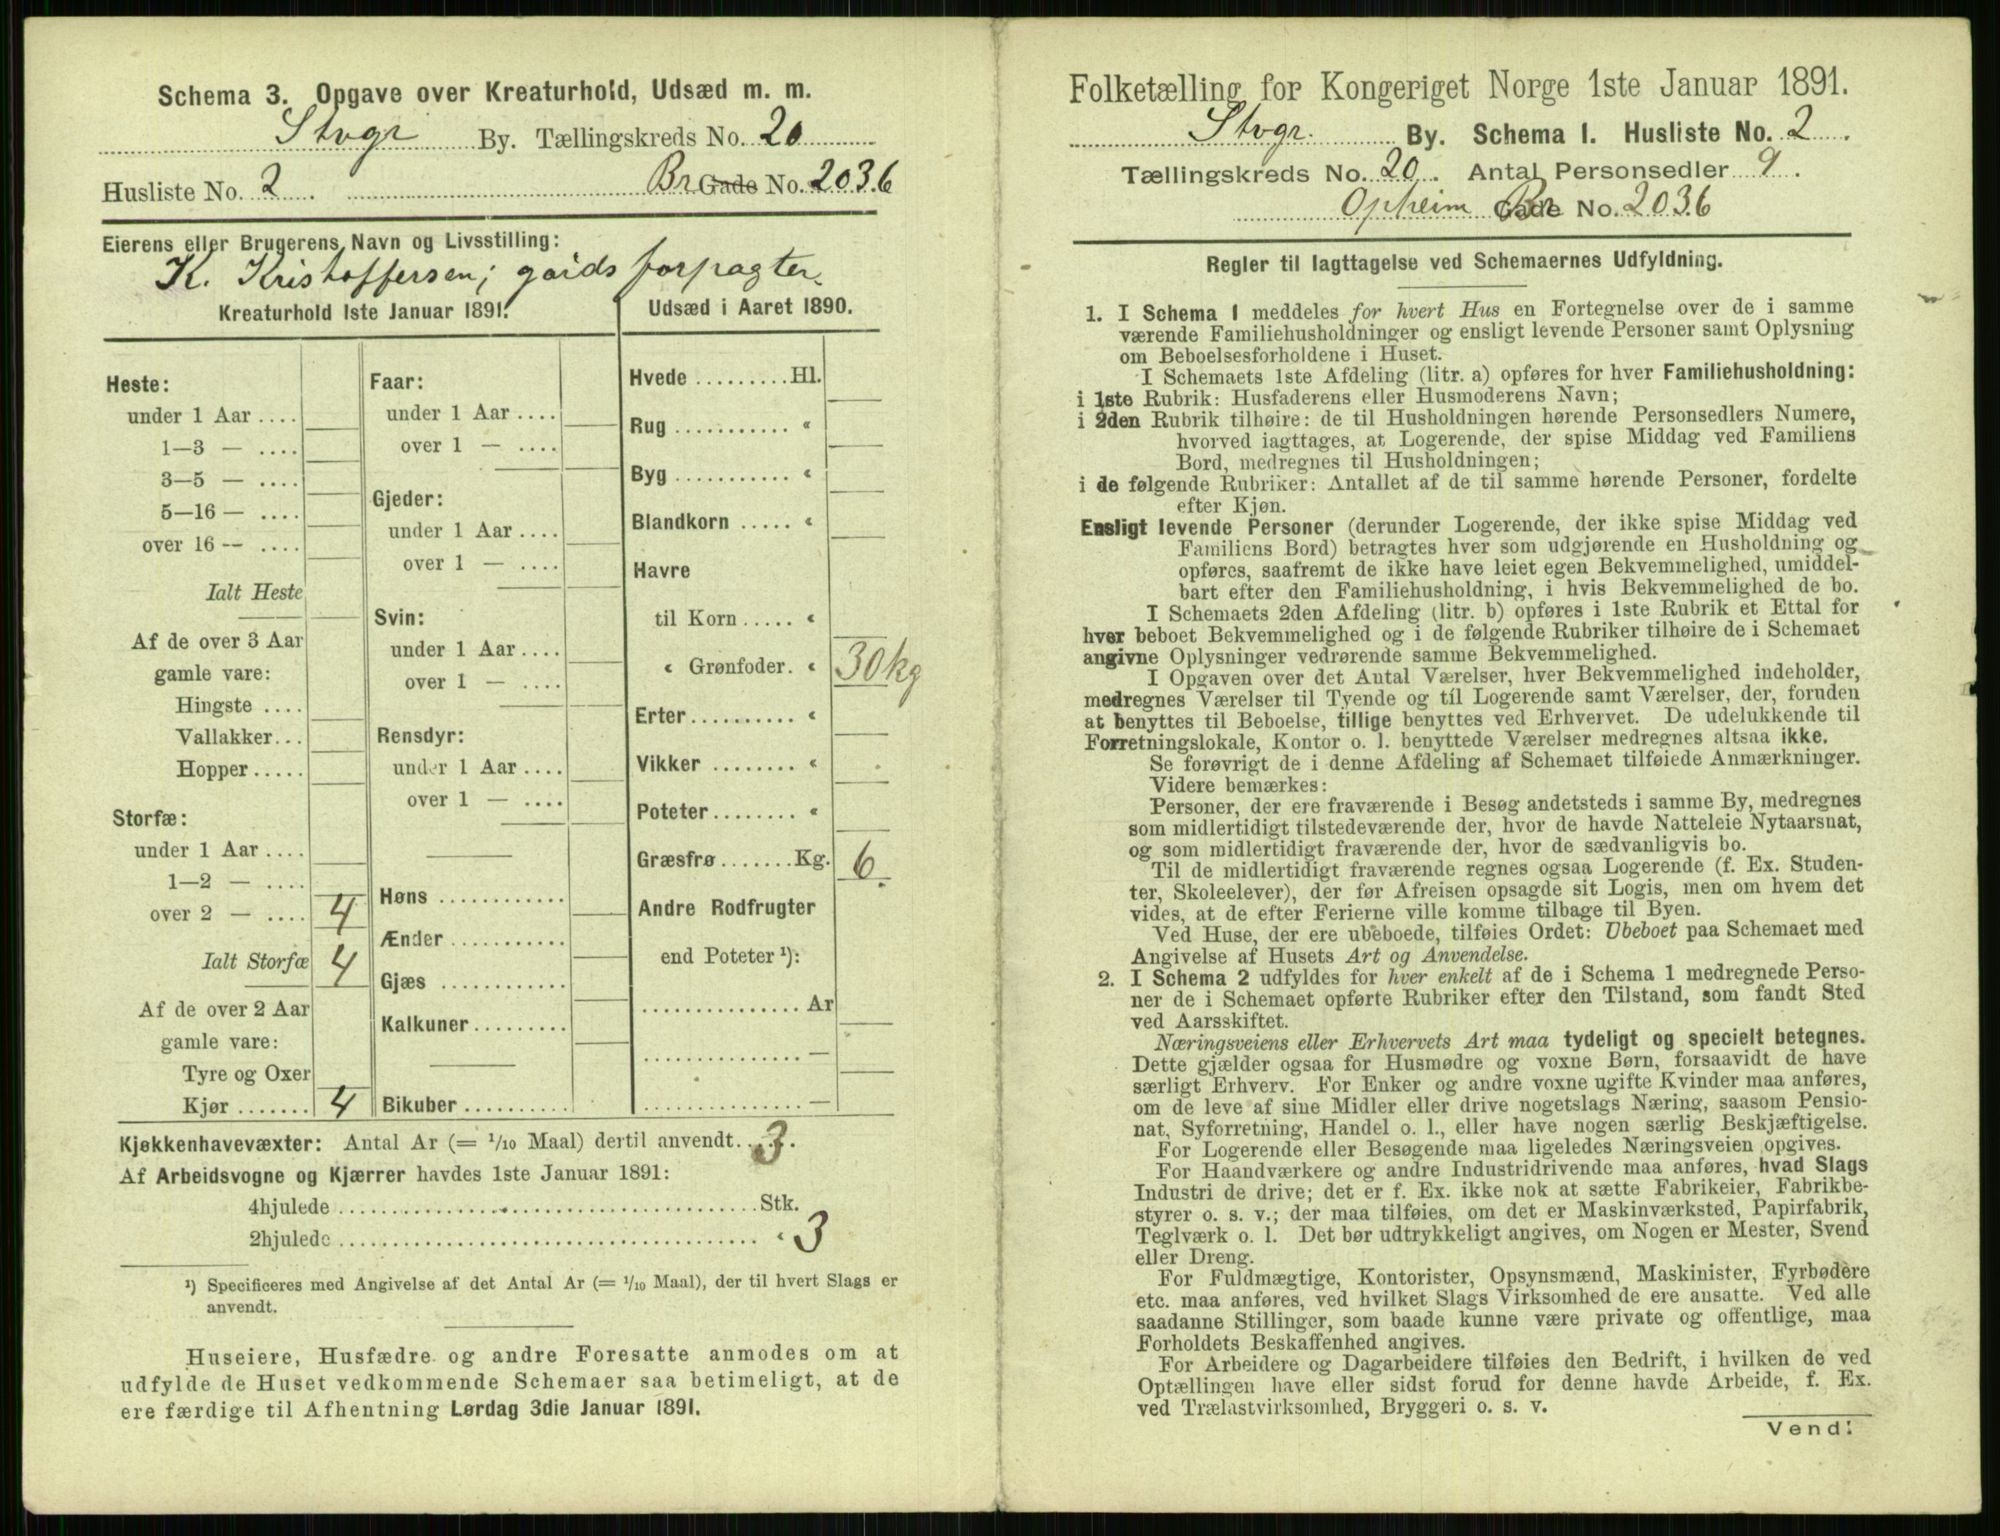 Schema 3. Opgave over Kreaturhold, Udsæd m. m.
Stvgr By. Tællingskreds No. 20
Husliste No. 2 Br Gade No. 2036
Eierens eller Brugerens Navn og Livsstilling:
K. Kristoffersen; gaards forpagter.
Kreaturhold 1ste Januar 1891.
Heste:
under 1 Aar ....
1—3 — ....
3—5 — ....
5—16 — ....
over 16 — ....
Ialt Heste
Af de over 3 Aar
gamle vare:
Hingste ....
Vallakker...
Hopper.....
Storfæ:
under 1 Aar ....
1—2 — ....
over 2 — .... 4
Ialt Storfæ 4
Af de over 2 Aar
gamle vare:
Tyre og Oxer
Kjør ....... 4
Faar:
under 1 Aar ....
over 1 — ....
Gjeder:
under 1 Aar ....
over 1 — ....
Svin:
under 1 Aar ....
over 1 — ....
Rensdyr:
under 1 Aar ....
over 1 — ....
Høns ............
Ænder ...........
Gjæs ............
Kalkuner .........
Bikuber ..........
Udsæd i Aaret 1890.
Hvede ......... Hl.
Rug ........... «
Byg ........... «
Blandkorn ..... «
Havre
til Korn ..... «
« Grønfoder. « 30 kg
Erter .......... «
Vikker ........ «
Poteter ........ «
Græsfrø ....... Kg. 6.
Andre Rodfrugter
end Poteter ¹):
............... Ar
............... —
............... —
Kjøkkenhavevæxter: Antal Ar (= 1/10 Maal) dertil anvendt. 3.
Af Arbeidsvogne og Kjærrer havdes 1ste Januar 1891:
4hjulede ........................................ Stk.
2hjulede ........................................ « 3
¹) Specificeres med Angivelse af det Antal Ar (= 1/10 Maal), der til hvert Slags er
anvendt.
Huseiere, Husfædre og andre Foresatte anmodes om at
udfylde de Huset vedkommende Schemaer saa betimeligt, at de
ere færdige til Afhentning Lørdag 3die Januar 1891.
Folketælling for Kongeriget Norge 1ste Januar 1891.
Stvgr. By. Schema I. Husliste No. 2.
Tællingskreds No. 20. Antal Personsedler 9.
Opheim Br Gade No. 2036
Regler til Iagttagelse ved Schemaernes Udfyldning.
1. I Schema 1 meddeles for hvert Hus en Fortegnelse over de i samme
værende Familiehusholdninger og ensligt levende Personer samt Oplysning
om Beboelsesforholdene i Huset.
I Schemaets 1ste Afdeling (litr. a) opføres for hver Familiehusholdning:
i 1ste Rubrik: Husfaderens eller Husmoderens Navn;
i 2den Rubrik tilhøire: de til Husholdningen hørende Personsedlers Numere,
hvorved iagttages, at Logerende, der spise Middag ved Familiens
Bord, medregnes til Husholdningen;
i de følgende Rubriker: Antallet af de til samme hørende Personer, fordelte
efter Kjøn.
Ensligt levende Personer (derunder Logerende, der ikke spise Middag ved
Familiens Bord) betragtes hver som udgjørende en Husholdning og
opføres, saafremt de ikke have leiet egen Bekvemmelighed, umiddel-
bart efter den Familiehusholdning, i hvis Bekvemmelighed de bo.
I Schemaets 2den Afdeling (litr. b) opføres i 1ste Rubrik et Ettal for
hver beboet Bekvemmelighed og i de følgende Rubriker tilhøire de i Schemaet
angivne Oplysninger vedrørende samme Bekvemmelighed.
I Opgaven over det Antal Værelser, hver Bekvemmelighed indeholder,
medregnes Værelser til Tyende og til Logerende samt Værelser, der, foruden
at benyttes til Beboelse, tillige benyttes ved Erhvervet. De udelukkende til
Forretningslokale, Kontor o. l. benyttede Værelser medregnes altsaa ikke.
Se forøvrigt de i denne Afdeling af Schemaet tilføiede Anmærkninger.
Videre bemærkes:
Personer, der ere fraværende i Besøg andetsteds i samme By, medregnes
som midlertidigt tilstedeværende der, hvor de havde Natteleie Nytaarsnat,
og som midlertidigt fraværende der, hvor de sædvanligvis bo.
Til de midlertidigt fraværende regnes ogsaa Logerende (f. Ex. Studen-
ter, Skoleelever), der før Afreisen opsagde sit Logis, men om hvem det
vides, at de efter Ferierne ville komme tilbage til Byen.
Ved Huse, der ere ubeboede, tilføies Ordet: Ubeboet paa Schemaet med
Angivelse af Husets Art og Anvendelse.
2. I Schema 2 udfyldes for hver enkelt af de i Schema 1 medregnede Perso-
ner de i Schemaet opførte Rubriker efter den Tilstand, som fandt Sted
ved Aarsskiftet.
Næringsveiens eller Erhvervets Art maa tydeligt og specielt betegnes.
Dette gjælder ogsaa for Husmødre og voxne Børn, forsaavidt de have
særligt Erhverv. For Enker og andre voxne ugifte Kvinder maa anføres,
om de leve af sine Midler eller drive nogetslags Næring, saasom Pensio-
nat, Syforretning, Handel o. l., eller have nogen særlig Beskjæftigelse.
For Logerende eller Besøgende maa ligeledes Næringsveien opgives.
For Haandværkere og andre Industridrivende maa anføres, hvad Slags
Industri de drive; det er f. Ex. ikke nok at sætte Fabrikeier, Fabrikbe-
styrer o. s. v.; der maa tilføies, om det er Maskinværksted, Papirfabrik,
Teglværk o. l. Det bør udtrykkeligt angives, om Nogen er Mester, Svend
eller Dreng.
For Fuldmægtige, Kontorister, Opsynsmænd, Maskinister, Fyrbødere
etc. maa anføres, ved hvilket Slags Virksomhed de ere ansatte. Ved alle
saadanne Stillinger, som baade kunne være private og offentlige, maa
Forholdets Beskaffenhed angives.
For Arbeidere og Dagarbeidere tilføies den Bedrift, i hvilken de ved
Optællingen have eller sidst forud for denne havde Arbeide, f. Ex.
ved Trælastvirksomhed, Bryggeri o. s. v.
Vend!